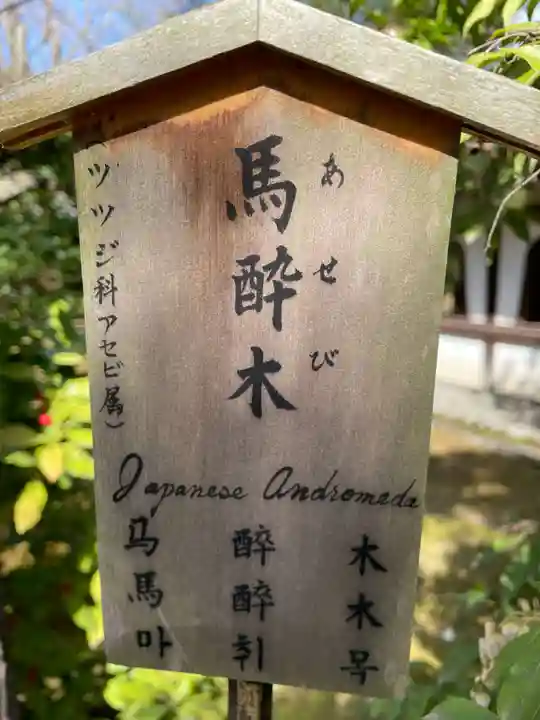 馬酔木
あせび
ツツジ科アセビ属)
Japanese Andromeda
马 醉 木
馬 醉 木
마 취 목